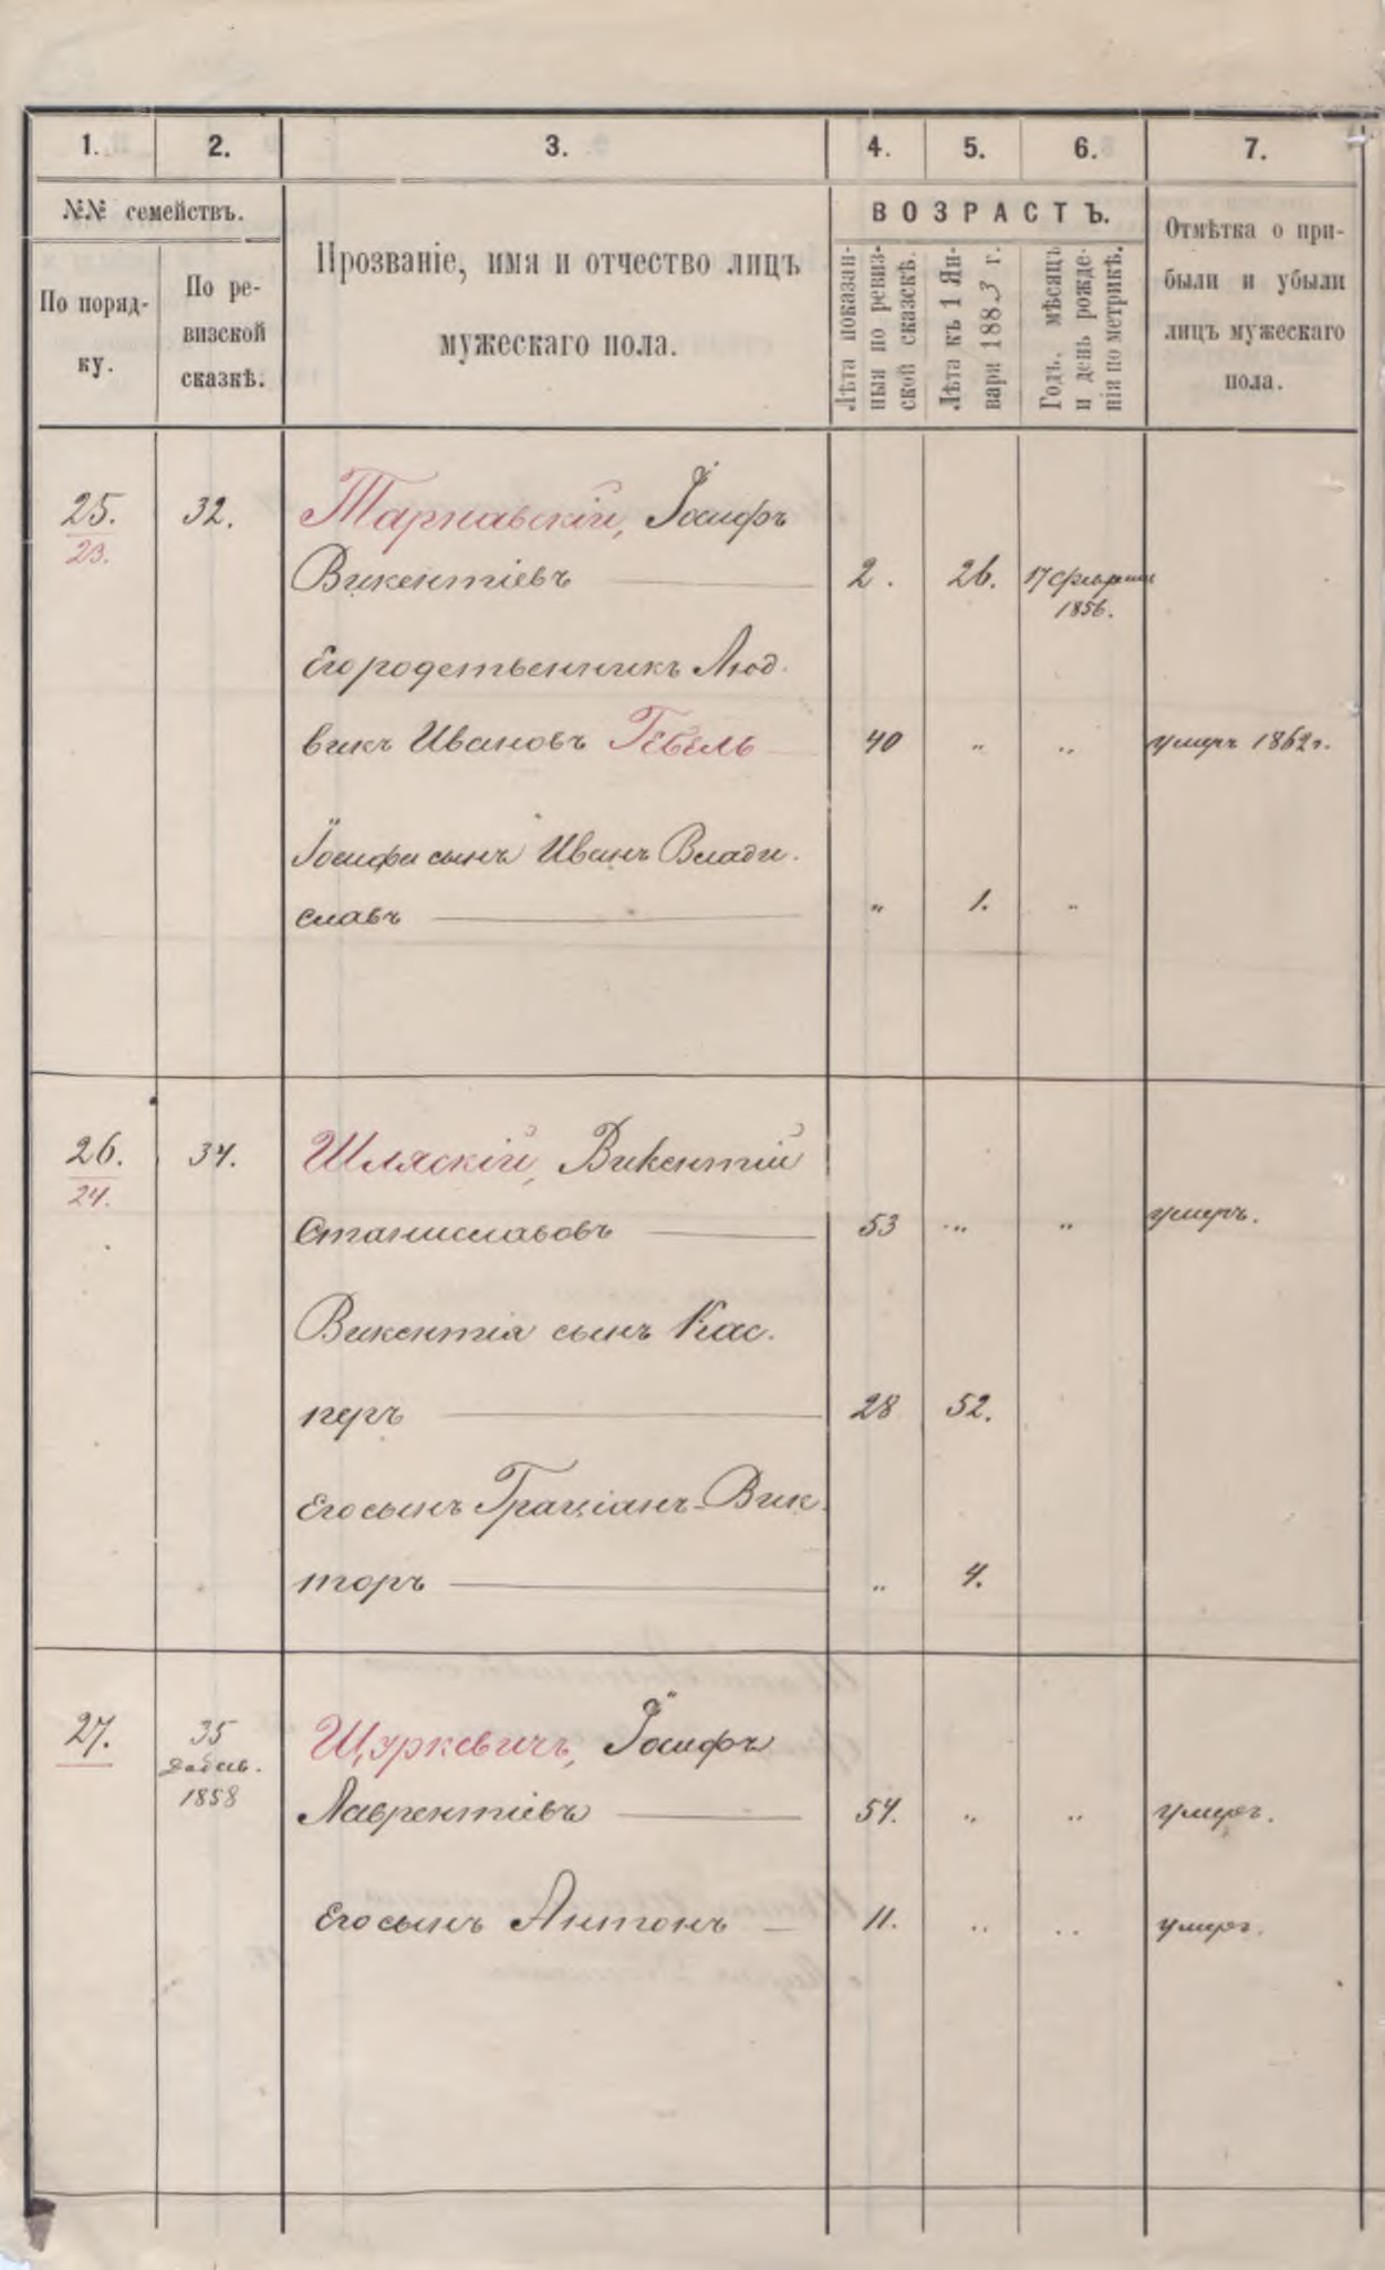 1. 2. 3. 4. 5. 6. 7.
№№ семействъ.
По поряд-
ку.
По ре-
визской
сказкѣ.
Прозваніе, имя и отчество лицъ
мужескаго пола.
ВОЗРАСТЪ.
Лѣта показан-
ныя по ревиз-
ской сказкѣ.
Лѣта къ 1 Ян-
варя 1883 г.
Годъ, мѣсяцъ
и день рожде-
нія по метрикѣ.
Отмѣтка о при-
были и убыли
лицъ мужескаго
пола.
25. 32. Тарнавскій, Іосифъ
23.
Викентіевъ 2. 26. 17 февраля
1856.
Его родственникъ Люд-
викъ Ивановъ Гебель 40 " " умеръ 1862 г.
Іосифа сынъ Иванъ Влади-
славъ " 1. "
26. 34. Шляскій, Викентій
24.
Станиславовъ 53 " " умеръ.
Викентія сынъ Кас-
перъ 28 52.
Его сынъ Граціанъ-Вик-
торъ " 4.
27. 35 Щуркевичъ, Іосифъ
1858
Лаврентіевъ 54. " " умеръ.
Его сынъ Антонъ 11. " " умеръ.